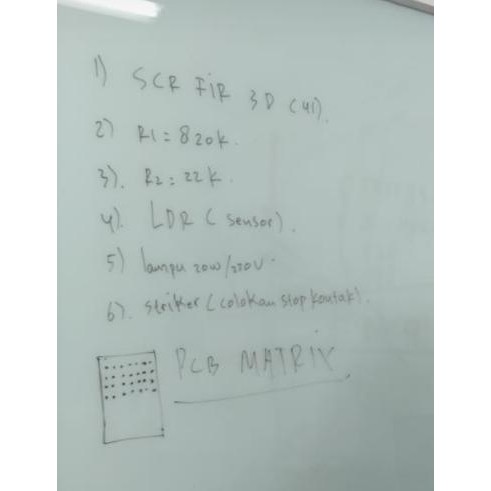 1) SCR FIR 3D (U1).
2) R1 = 820k.
3). R2 = 22k.
4). LDR (sensor).
5) lampu 20W/220V.
6). striker (colokan stop kontak).
PCB MATRIX